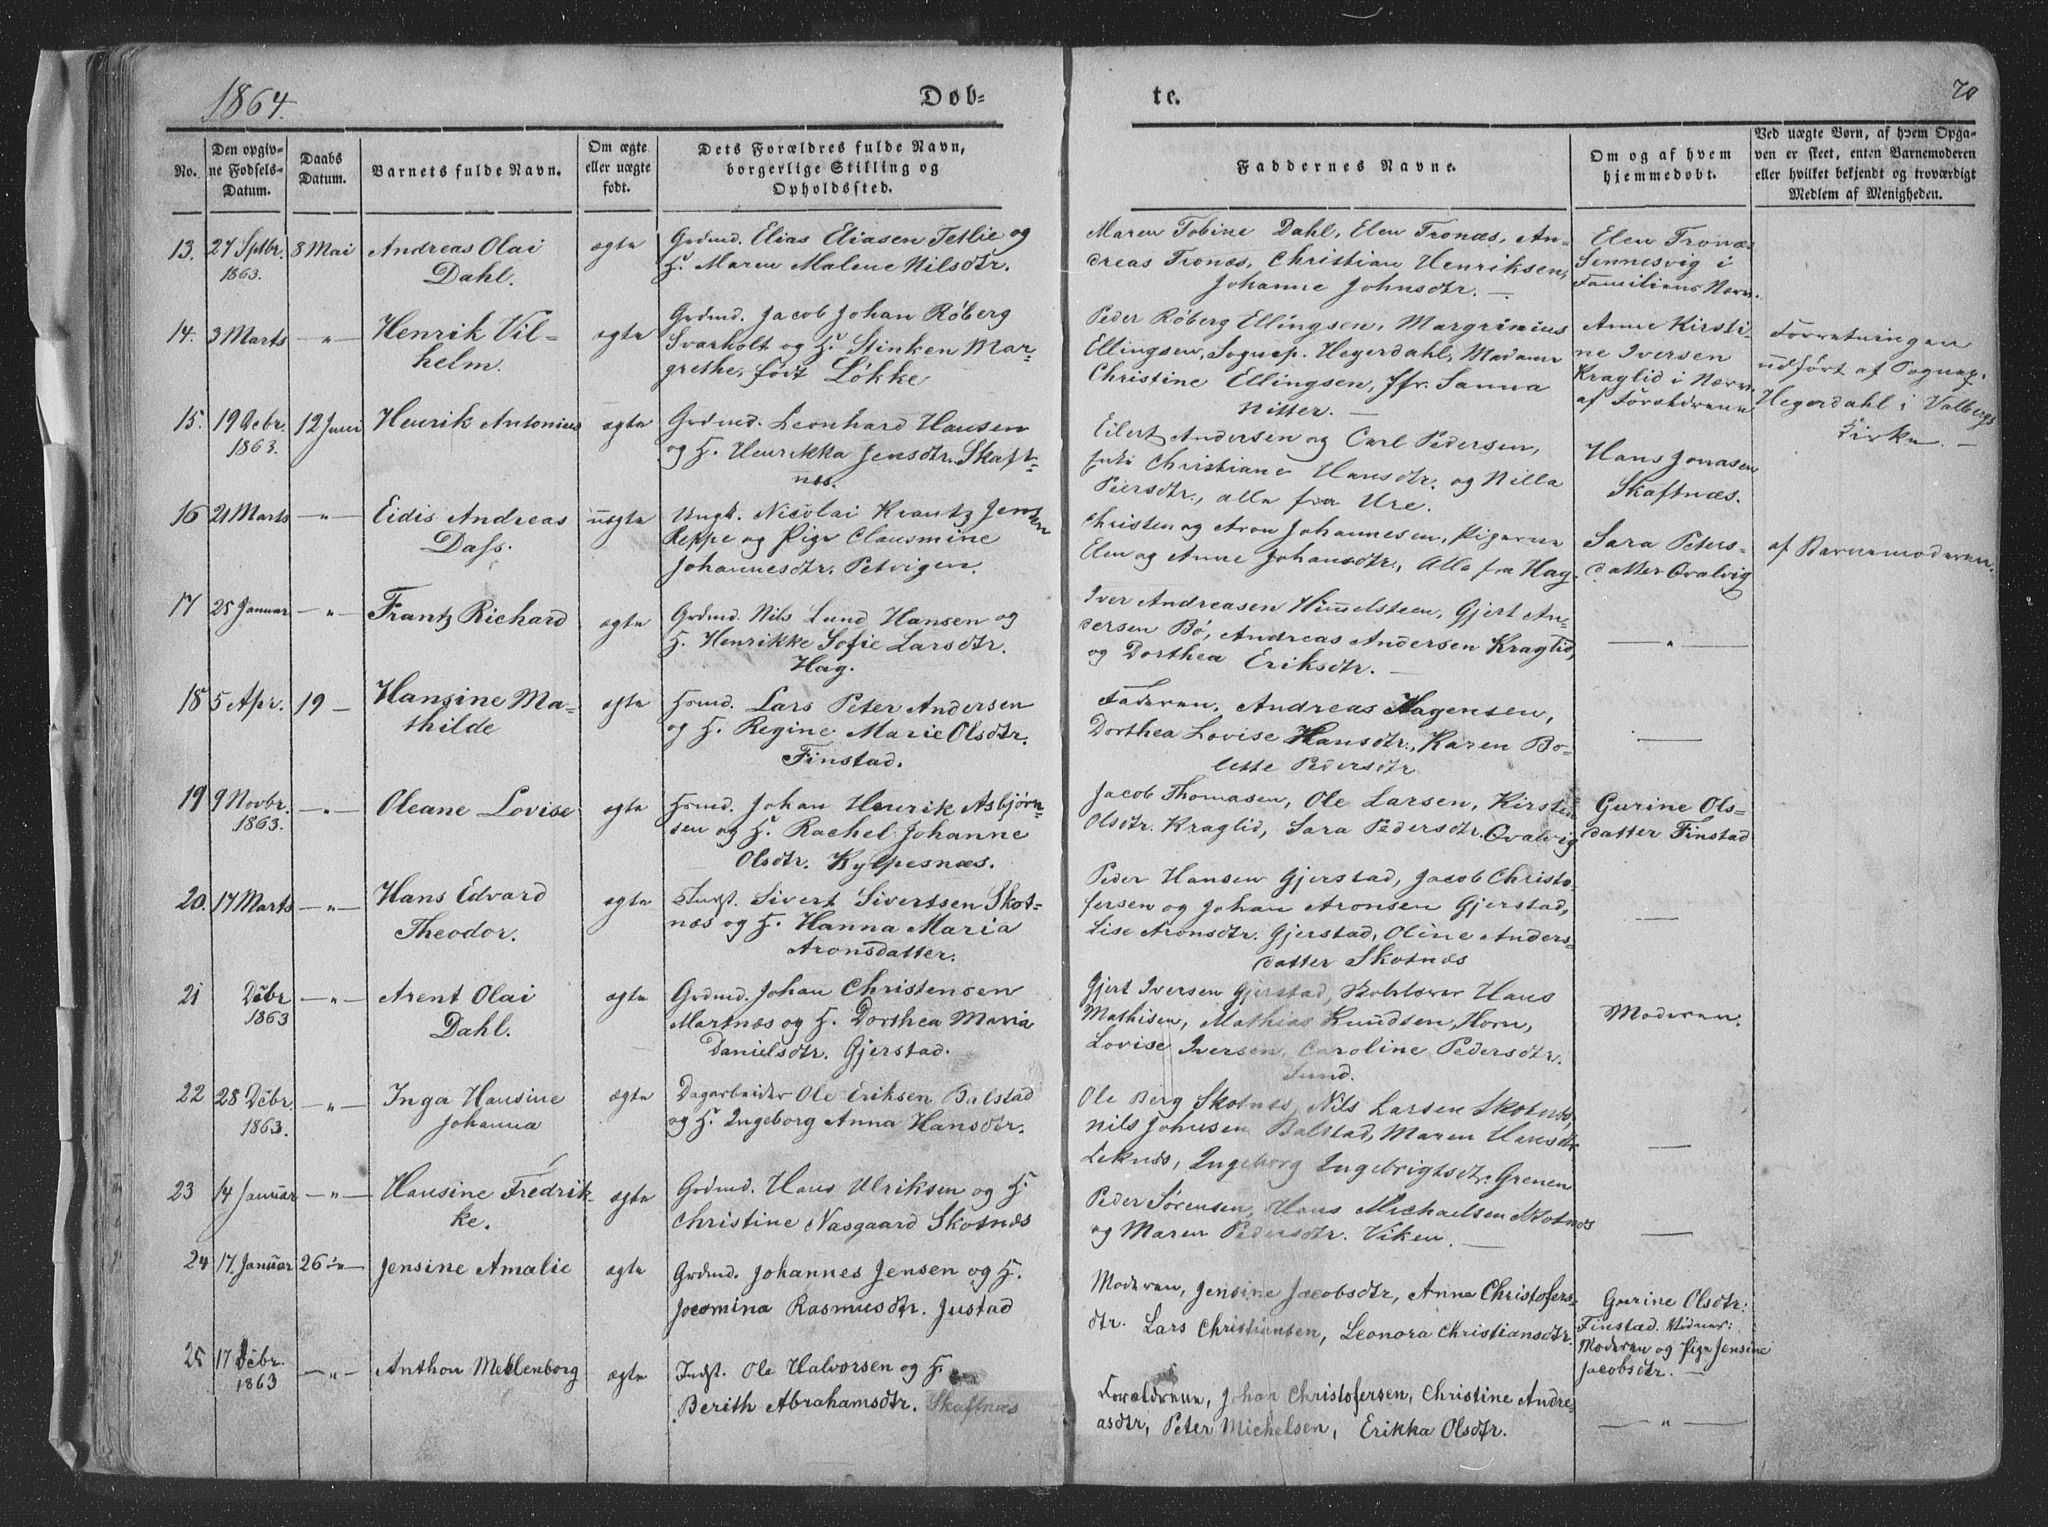 1864.
Døb-
te.
70
No.
Den opgiv-
ne Fødsels-
Datum.
Daabs
Datum.
Barnets fulde Navn.
Om ægte
eller uægte
født.
Dets Forældres fulde Navn,
borgerlige Stilling og
Opholdssted.
Faddernes Navne.
Om og af hvem
hjemmedøbt.
Ved uægte Børn, af hvem Opga-
ven er skeet, enten Barnemoderen
eller hvilket bekjendt og troværdigt
Medlem af Menigheden.
13. 27 Sptbr. 1863. 8 Mai
Andreas Olai
Dahl.
ægte
Grdmd. Elias Eliasen Tetlie og
H. Maren Malene Nilsdtr.
Maren Tobine Dahl, Elen Tronæs, An-
dreas Tronæs, Christian Henriksen,
Johanne Johnsdtr. —
Elen Tronæs
Sennesvig i
Familiens Nærv.
14. 3 Marts — " —
Henrik Vil-
helm.
ægte
Grdmd. Jacob Johan Röberg
Svarholt og H. Stinken Mar-
grethe, født Løkke
Peder Röberg Ellingsen, Margrinius
Ellingsen, Sognep. Hegerdahl, Madame
Christine Ellingsen, Jfr. Sanna
Nitter. —
Anne Kirsti-
ne Iversen
Kraglid i Nærv.
af Forældrene
Forretningen
udført af Sognep.
Hegerdahl i Valbergs
Kirke. —
15. 19 Debr. 1863. 12 Juni
Henrik Antonius
ægte
Grdmd. Leonhard Hansen
og H. Henrikka Jensdtr. Skaft-
næs.
Eilert Andersen og Carl Pedersen,
Christiane Hansdtr. og Nilla
Peersdtr., alle fra Ure.
Hans Jonasen
Skaftnæs.
16 21 Marts — " —
Eidis Andreas
Dass.
uægte
Ungk. Nicolai Krantz Jensen
Reppe og Pige Clausmine
Johannesdtr. Petvigen.
Christen og Aron Johannesen, Pigerne
Elen og Anne Johansdtr., Alle fra Hag.
Sara Peters-
datter Qvalvig
af Barnemoderen.
17 25 Januar — " —
Frantz Richard
ægte
Grdmd. Nils Lund Hansen og
H. Henrikke Sofie Larsdtr.
Hag.
Iver Andreasen Himmelsteen, Gjert An-
dersen Bö, Andreas Andersen Kraglid,
og Dorthea Eriksdtr. —
— " —
18 5 Apr. 19 —
Hansine Ma-
thilde
ægte
Hsmd. Lars Peter Andersen
og H. Regine Marie Olsdtr.
Finstad.
Faderen, Andreas Hagensen,
Dorthea Lovise Hansdtr., Karen Bo-
lette Pedersdtr
—
19 9 Novbr. 1863. — " —
Oleane Lovise
ægte
Hsmd. Johan Henrik Asbjørn-
sen og H. Rachel Johanne
Olsdtr. Kylpesnæs.
Jacob Thomasen, Ole Larsen, Kirsten
Olsdtr. Kraglid, Sara Pedersdtr. Qvalvig
Gurine Ols-
datter Finstad
20. 17 Marts — " —
Hans Edvard
Theodor.
ægte
Indst. Sivert Sivertsen Skot-
næs og H. Hanna Maria
Aronsdatter.
Peder Hansen Gjerstad, Jacob Christo-
fersen og Johan Aronsen Gjerstad,
Lise Aronsdtr. Gjerstad, Oline Anders-
datter Skotnæs
—
21 Debr 1863 — " —
Arent Olai
Dahl.
ægte
Grdmd. Johan Christensen
Martnæs og H. Dorthea Maria
Danielsdtr. Gjerstad.
Gjert Iversen Gjerstad, Skolelærer Hans
Mathisen, Mathias Knudsen Horn,
Lovise Iversen, Caroline Pedersdtr.
Sund.
Moderen.
22 28 Debr. 1863. — " —
Inga Hansine
Johanna
ægte
Dagarbeider Ole Eriksen Balstad
og H. Ingeborg Anna Hansdtr.
Ole Berg Skotnæs, Nils Larsen Skotnæs,
Nils Johnsen Balstad, Maren Hansdtr
Leknæs, Ingeborg Ingebrigtsdtr. Grenen
—
23 14 Januar — " —
Hansine Fredrik-
ke.
ægte
Grdmd. Hans Ulriksen og H.
Christine Næsgaard Skotnæs
Peder Sørensen, Hans Michaelsen Skotnæs
og Maren Pedersdtr. Viken. —
—
24 17. Januar 26 " —
Jensine Amalie
ægte
Grdmd. Johannes Jensen og H.
Jocomina Rasmusdtr. Justad
Moderen, Jensine Jacobsdtr, Anna Christofers-
dtr. Lars Christiansen, Leonora Christiansdtr.
Gurine Olsdtr:
Finstad. Vidner:
Moderen og Pige Jensine
Jacobsdtr. —
25 17 Debr. 1863 — " —
Anthon Mecklenborg
ægte
Indst. Ole Halvorsen og H.
Berith Abrahamsdtr. Skaftnæs
Forældrene, Johan Christofersen, Christine Andre-
asdtr, Peter Michelsen, Erikka Olsdtr.
— " —